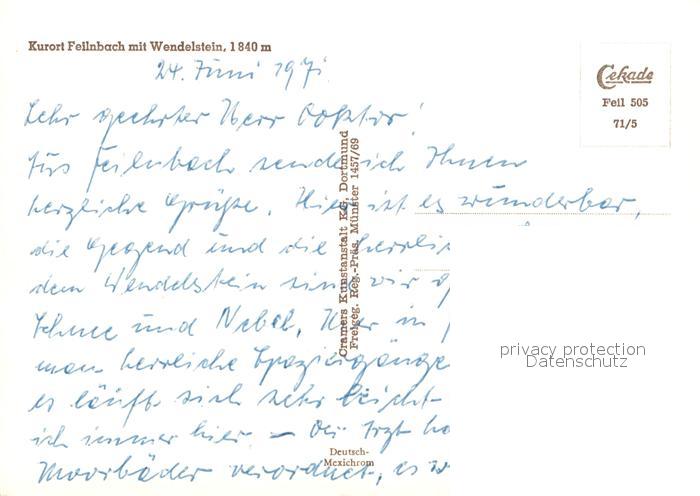 Kurort Feilnbach mit Wendelstein, 1840 m
24. Juni 1971
Sehr geehrter Herr Doktor!
Feilnbach sende ich Ihnen
herzliche Grüße. Hier ist es wunderbar,
die Gegend und die herrli
dem Wendelstein sind wir
Schnee und Nebel. Hier in
man herrliche Spaziergänge
es läuft sich sehr leicht
ich immer hier. — Der Arzt ha
Moorbäder verordnet, es w
Cekade
Feil 505
71/5
Cramers Kunstanstalt KG, Dortmund
Freigeg. Reg.-Präs. Münster 1457/69
Deutsch-
Mexichrom
privacy protection
Datenschutz